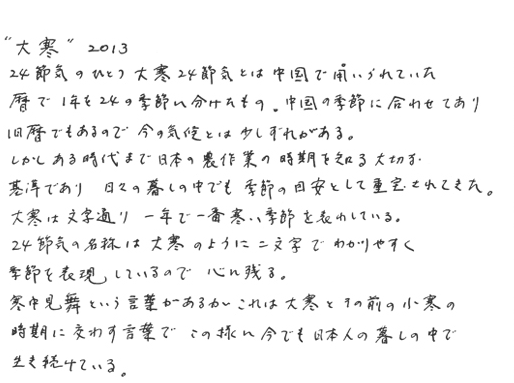 "大寒" 2013
24節気のひとつ 大寒 24節気とは中国で用いられていた
暦で 1年を24の季節に分けたもの。中国の季節に合わせてあり
旧暦でもあるので 今の気候とは少しずれがある。
しかし ある時代まで日本の農作業の時期を知る大切な
基準であり 日々の暮しの中でも 季節の目安として重宝されてきた。
大寒は文字通り 一年で一番寒い季節を表わしている。
24節気の名称は大寒のように二文字で わかりやすく
季節を表現しているので 心に残る。
寒中見舞という言葉があるが これは大寒とその前の小寒の
時期に交わす言葉で この様に今でも日本人の暮しの中で
生き続けている。